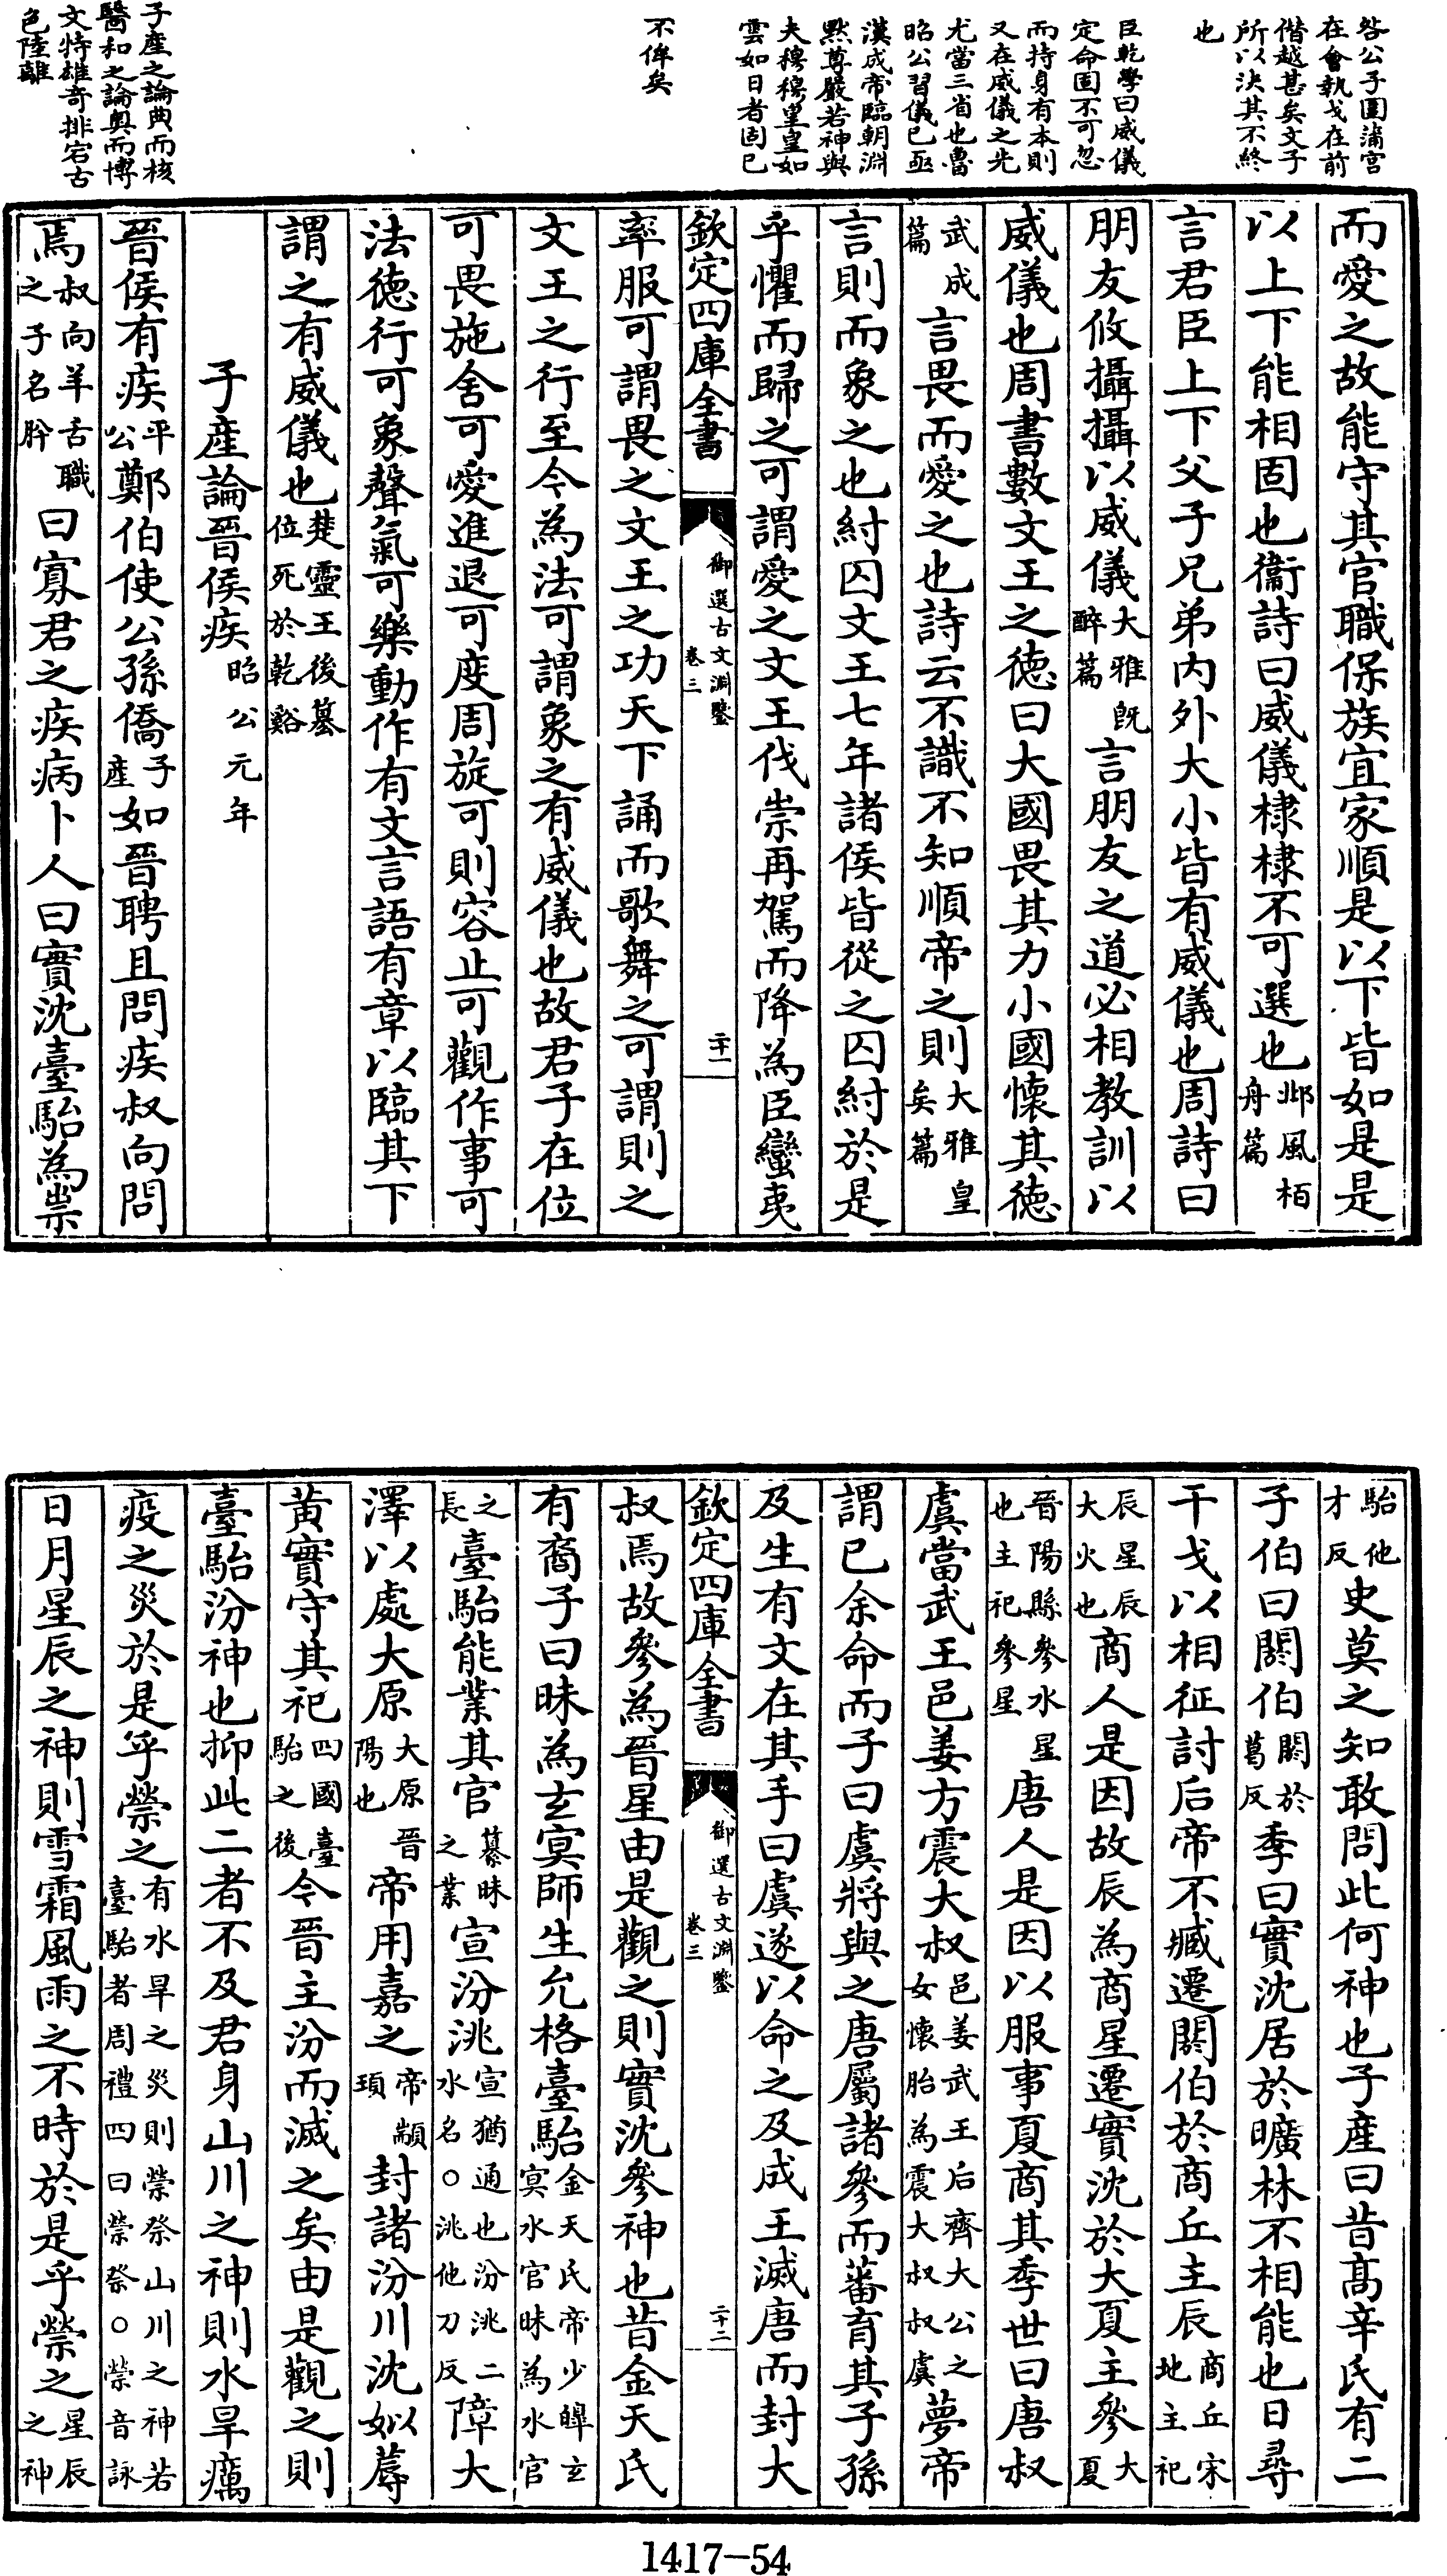 咎公子圍蒲宮
在會執戈在前
僭越甚矣文子
所以決其不終
也
臣乾學曰威儀
定命固不可忽
而持身有本則
又在威儀之先
尤當三省也魯
昭公習儀已亟
漢成帝臨朝淵
默尊嚴若神與
夫穆穆皇皇如
雲如日者固已
不侔矣
子產之論典而核
醫和之論奥而博
文特雄竒排宕古
色陸離
而愛之故能守其官職保族宜家順是以下皆如是是
以上下能相固也衞詩曰威儀棣棣不可選也邶風栢舟篇
言君臣上下父子兄弟内外大小皆有威儀也周詩曰
朋友攸攝攝以威儀大雅既醉篇言朋友之道必相教訓以
威儀也周書數文王之德曰大國畏其力小國懷其德
武成篇言畏而愛之也詩云不識不知順帝之則大雅皇矣篇
言則而象之也紂囚文王七年諸侯皆從之囚紂於是
乎懼而歸之可謂愛之文王伐崇再駕而降為臣蠻夷
欽定四庫全書 御選古文淵鑒 卷三 二十一
率服可謂畏之文王之功天下誦而歌舞之可謂則之
文王之行至今為法可謂象之有威儀也故君子在位
可畏施舍可愛進退可度周旋可則容止可觀作事可
法德行可象聲氣可樂動作有文言語有章以臨其下
謂之有威儀也楚靈王後簒位死於乾谿
子產論晉侯疾昭公元年
晉侯有疾平公鄭伯使公孫僑子產如晉聘且問疾叔向問
焉叔向羊舌職之子名肸曰寡君之疾病卜人曰實沈臺駘為祟
駘他才反史莫之知敢問此何神也子產曰昔髙辛氏有二
子伯曰閼伯閼於葛反季曰實沈居於曠林不相能也日尋
干戈以相征討后帝不臧遷閼伯於商丘主辰商丘宋地主祀
辰星辰大火也商人是因故辰為商星遷實沈於大夏主參大夏
晉陽縣參水星也主祀參星唐人是因以服事夏商其季世曰唐叔
虞當武王邑姜方震大叔邑姜武王后齊大公之女懷胎為震大叔叔虞夢帝
謂已余命而子曰虞將與之唐屬諸參而蕃育其子孫
及生有文在其手曰虞遂以命之及成王滅唐而封大
欽定四庫全書 御選古文淵鑒 卷三 二十二
叔焉故參為晉星由是觀之則實沈參神也昔金天氏
有裔子曰昧為玄冥師生允格臺駘金天氏帝少皥玄冥水官昧為水官
之長臺駘能業其官纂昧之業宣汾洮宣猶通也汾洮二水名○洮他刀反障大
澤以處大原大原晉陽也帝用嘉之帝顓頊封諸汾川沈姒蓐
黃實守其祀四國臺駘之後今晉主汾而滅之矣由是觀之則
臺駘汾神也抑此二者不及君身山川之神則水旱癘
疫之災於是乎禜之有水旱之災則禜祭山川之神若臺駘者周禮四曰禜祭○禜音詠
日月星辰之神則雪霜風雨之不時於是乎禜之星辰之神
1417-54